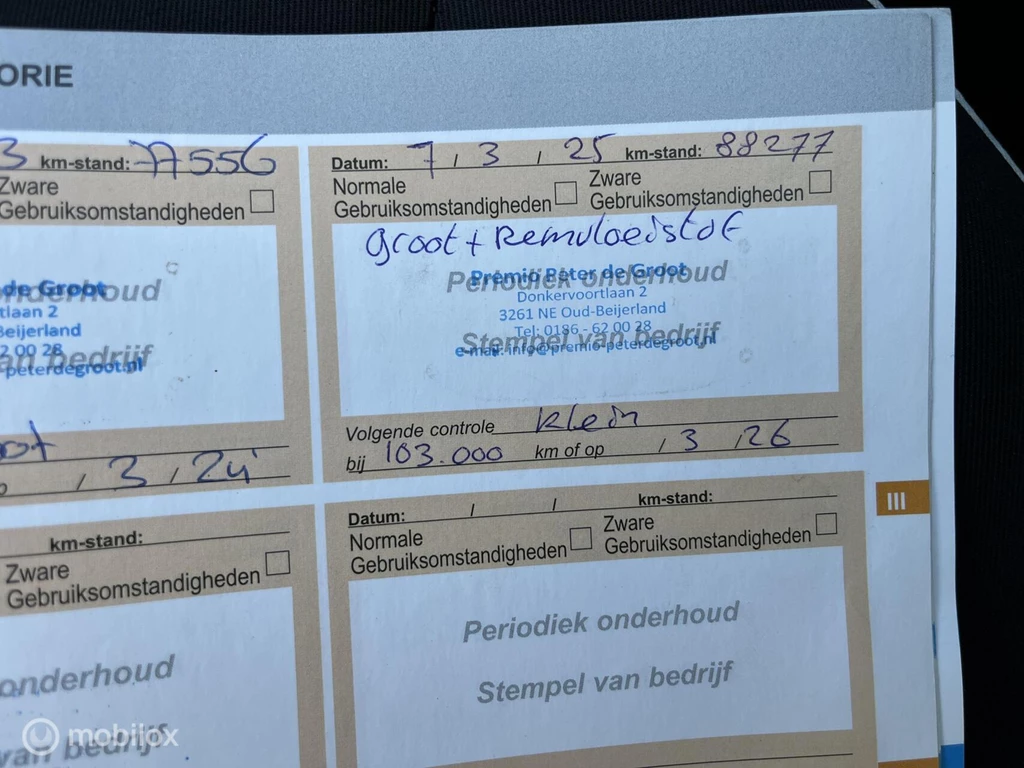 ORIE
3 km-stand: 77556
Zware
Gebruiksomstandigheden
onderhoud
de Groot
tlaan 2
Beijerland
2 00 28
van bedrijf
-peterdegroot.nl
oot
/ 3 / 24
Datum: 7 / 3 / 25 km-stand: 88277
Normale Gebruiksomstandigheden
Zware Gebruiksomstandigheden
Groot + Remvloeistof
Periodiek onderhoud
Premio Peter de Groot
Donkervoortlaan 2
3261 NE Oud-Beijerland
Tel: 0186 - 62 00 28
Stempel van bedrijf
e-mail: info@premio-peterdegroot.nl
Volgende controle Klein
bij 103.000 km of op / 3 / 26
III
km-stand:
Zware
Gebruiksomstandigheden
onderhoud
van bedrijf
Datum: / / km-stand:
Normale Gebruiksomstandigheden
Zware Gebruiksomstandigheden
Periodiek onderhoud
Stempel van bedrijf
mobilox